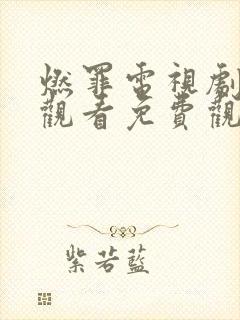 燃罪電視劇
觀看免費觀
紫若藍